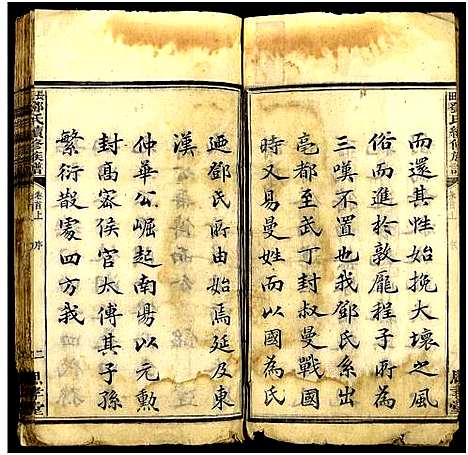 而還其性始挽大壞之風
俗而進於敦龐程子所為
三嘆不置也我鄧氏系出
亳都至武丁封叔曼戰國
時又易曼姓而以國為氏
迺鄧氏所由始焉延及東
漢
仲華公崛起南陽以元勲
封高密侯官太傅其子孫
繁衍散處四方我
鄧氏續修族譜
卷首上
序